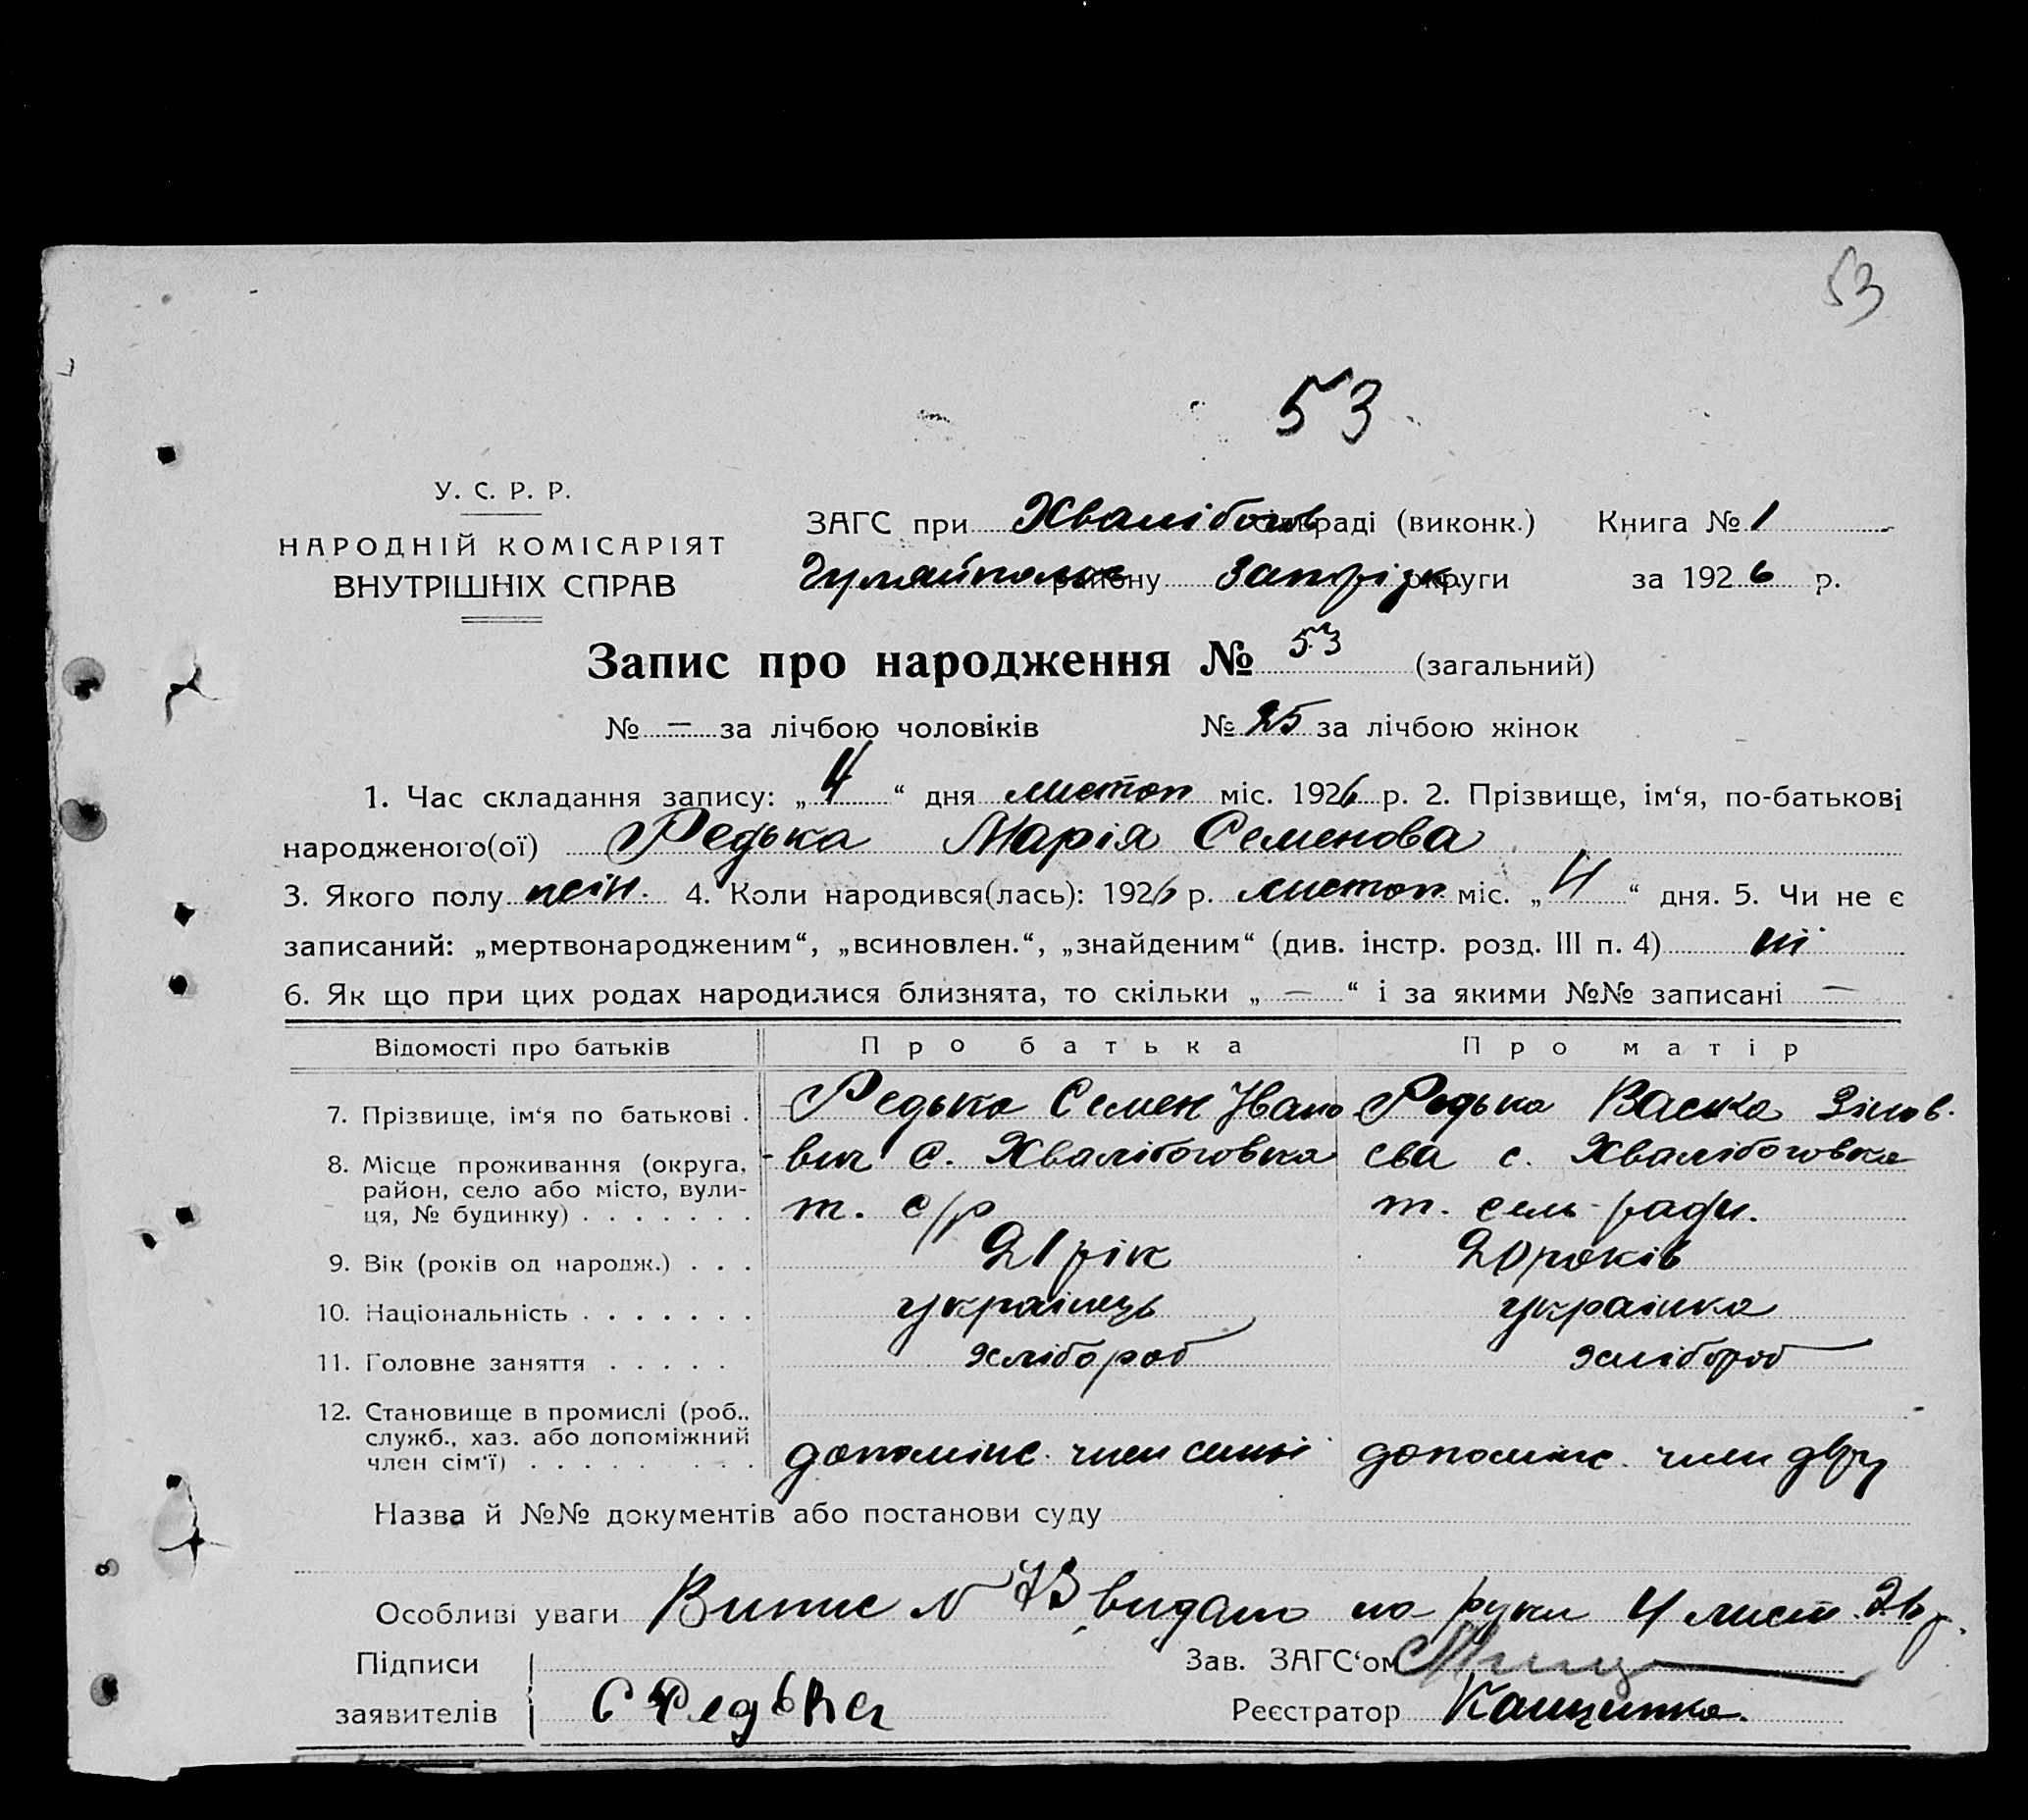 53
53
У. С. Р. Р.
НАРОДНІЙ КОМІСАРІЯТ
ВНУТРІШНІХ СПРАВ
ЗАГС при Хвалібогов раді (виконк.) Книга № 1
Гуляйпольс району Запоріз. округи за 1926 р.
Запис про народження № 53 (загальний)
№ — за лічбою чоловіків № 25 за лічбою жінок
1. Час складання запису: „4“ дня листоп міс. 1926 р. 2. Прізвище, ім‘я, по-батькові
народженого(ої) Редька Марія Семенова
3. Якого полу жін. 4. Коли народився(лась): 1926 р. листоп. міс. „4“ дня. 5. Чи не є
записаний: „мертвонародженим“, „всиновлен.“, „знайденим“ (див. інстр. розд. III п. 4) ні
6. Як що при цих родах народилися близнята, то скільки „—“ і за якими №№ записані —
Відомості про батьків Про батька Про матір
7. Прізвище, ім‘я по батькові . Редька Семен Івано Редька Васка Зінов.
8. Місце проживання (округа, вич с. Хвалібоговка єва с. Хвалібоговка
район, село або місто, вули-
ця, № будинку) . . . . . . . т. с/р т. сель-ради.
9. Вік (років од народж.) . . . 21 рік 20 років
10. Національність . . . . . . . українець українка
11. Головне заняття . . . . . хлібороб хлібороб
12. Становище в промислі (роб.,
служб., хаз. або допоміжний
член сім‘ї) . . . . . . . . допоміж. член семьї допоміж. член
Назва й №№ документів або постанови суду
Особливі уваги Випис № 73 видано на руки 4 лист. 26 р.
Підписи Зав. ЗАГС‘ом
заявителів С Редька Реєстратор